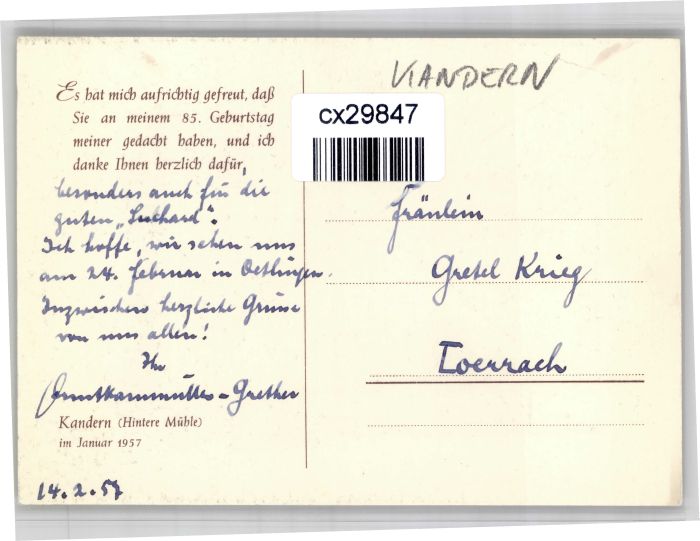 KANDERN
cx29847
Es hat mich aufrichtig gefreut, daß
Sie an meinem 85. Geburtstag
meiner gedacht haben, und ich
danke Ihnen herzlich dafür,
besonders auch für die
guten „Suchard".
Ich hoffe, wir sehen uns
am 24. Februar in Oetlingen.
Inzwischen herzliche Grüsse
von uns allen!
Ihr
-Grether
Kandern (Hintere Mühle)
im Januar 1957
14.2.57
Fräulein
Gretel Krieg
Loerrach